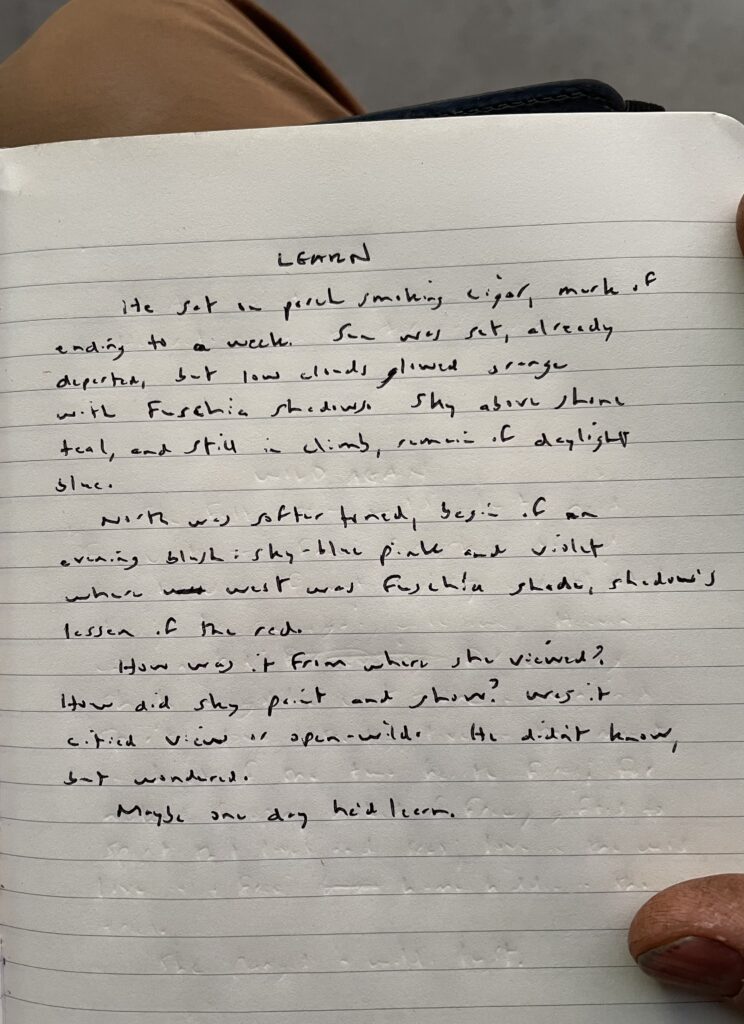 LEARN
He sat on porch smoking cigar, mark of
ending to a week. Sun was set, already
departed, but low clouds glowed orange
with Fuschia shadows. Sky above shone
teal, and still in climb, remain of daylight
blue.
North was softer toned, begin of an
evening blush: sky-blue pink and violet
where west was Fuschia shade, shadow's
lessen of the red.
How was it from where she viewed?
How did sky paint and show? Was it
citied view or open-wild. He didn't know,
but wondered.
Maybe one day he'd learn.